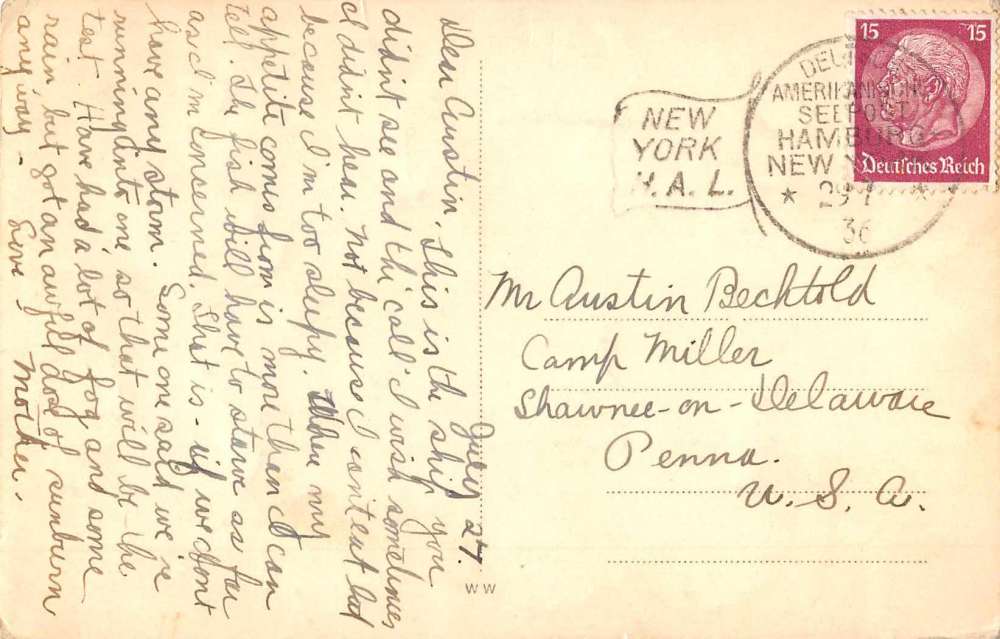 July 27.
Dear Austin, This is the ship you
didn't see and the "call" I wish sometimes
I didn't hear. Not because I can't eat but
because I'm too sleepy. Where my
appetite comes from is more than I can
tell. The fish will have to starve as far
as I'm concerned. That is - if we don't
have any storm. Some one said we're
running into one so that will be the
test. Have had a lot of fog and some
rain but got an awful dose of sunburn
anyway -
Love Mother.
WW
NEW
YORK
H.A.L.
AMERIKANISCHE
SEEPOST
HAMBURG-
NEW YORK
36
15 15
Deutsches Reich
Mr Austin Bechtold
Camp Miller
Shawnee-on-Delaware
Penna.
U.S.A.